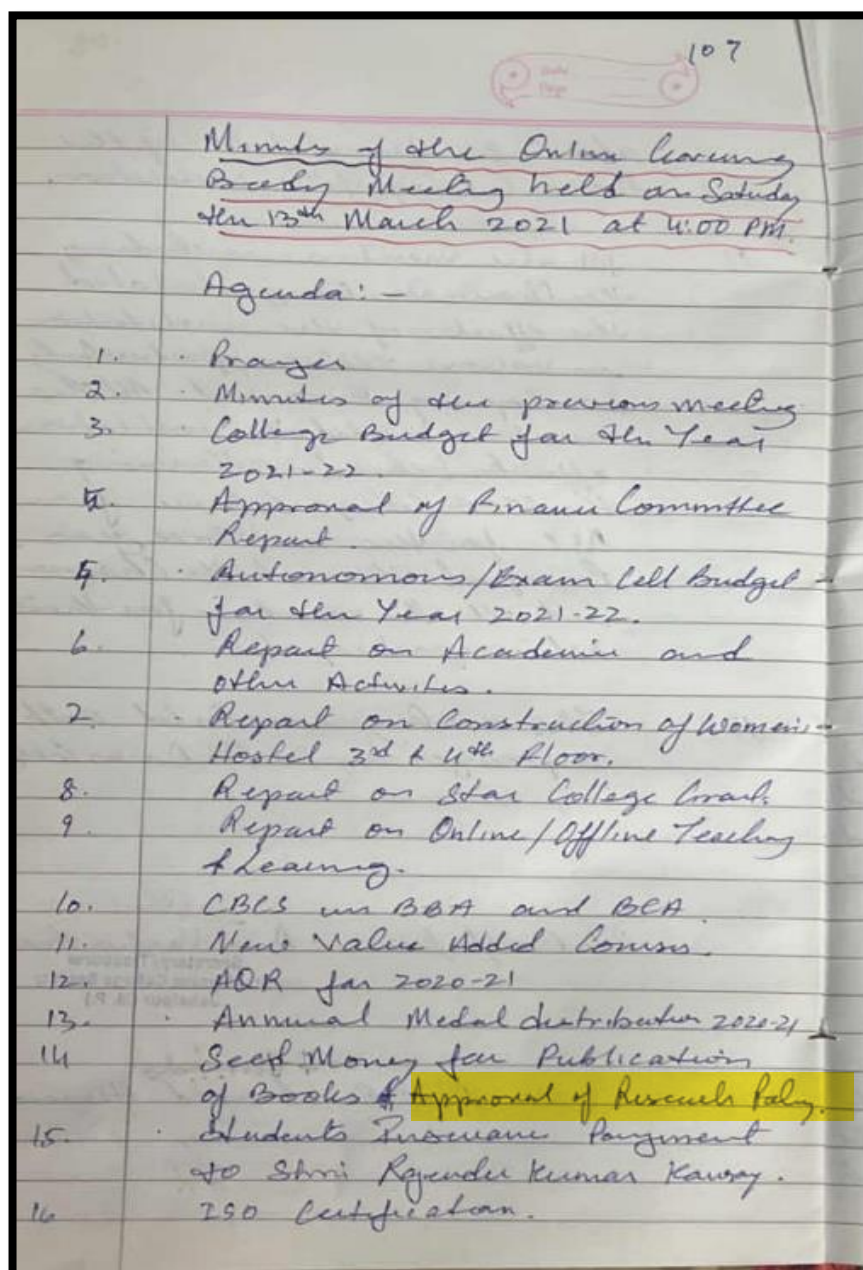 107
Minutes of the Online Governing
Body Meeting held on Saturday
the 13th March 2021 at 4:00 PM.
Agenda: -
1. Prayer
2. Minutes of the previous meeting
3. College Budget for the Year
2021-22.
4. Approval of Finance Committee
Report.
5. Autonomous/Exam Cell Budget -
for the Year 2021-22.
6. Report on Academic and
other Activites.
7. Report on Construction of Women's
Hostel 3rd & 4th Floor.
8. Report on Star College Grant.
9. Report on Online/Offline Teaching
& Learning.
10. CBCS in BBA and BCA.
11. New Value Added Courses.
12. AQR for 2020-21
13. Annual Medal distribution 2020-21
14 Seed Money for Publication
of Books & Approval of Research Policy.
15. Students Insurance Payment
to Shri Rajender Kumar
16 ISO Certification.